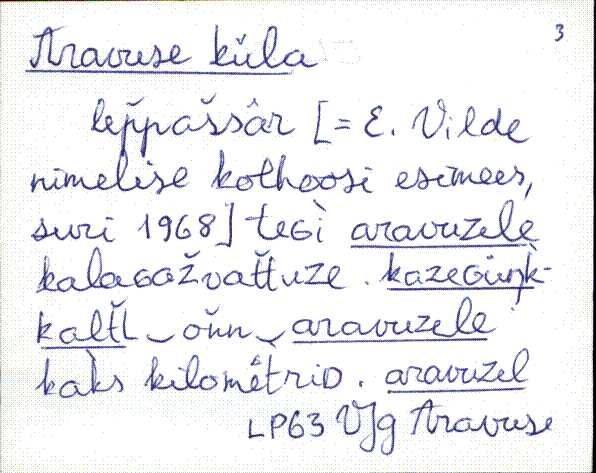 3
Aravuse küla
lep̆pas̆sâr [= E. Vilde
nimelise kolhoosi esimees,
suri 1968] teGì aravuzele
kalaGaz̆vat̆tuze. kazeGüŋk-
kal̆tL‿on̆n‿aravuzele
kaks kilomêtriD. aravuzel
LP63 VJg Aravuse